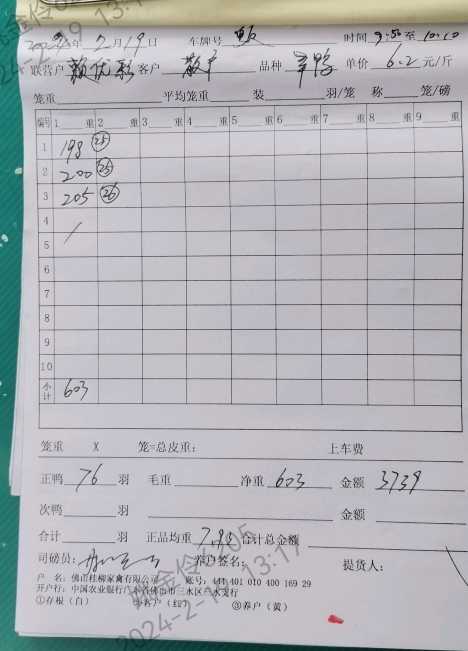 2024年2月19日 车牌号 时间 9:50至10:10
联营户 颜优彩 客户 散户 品种 羊鸭 单价 6.2 元/斤
笼重 平均笼重 装 羽/笼 称 笼/磅
编号 1 重 2 重 3 重 4 重 5 重 6 重 7 重 8 重 9 重
1 198 25
2 200 25
3 205 26
4
5
6
7
8
9
10
小计 603
笼重 X 笼=总皮重: 上车费
正鸭 76 羽 毛重 净重 603 金额 3739
次鸭 羽 金额
合计 羽 正品均重 7.93 合计总金额
司磅员: 养户签名: 提货人:
户 名: 佛山桂柳家禽有限公司 账号: 441 401 010 400 169 29
开户行: 中国农业银行 佛山市三水区 支行
①存根（白） ②客户（红） ③养户（黄）
2024-2-19 13:17